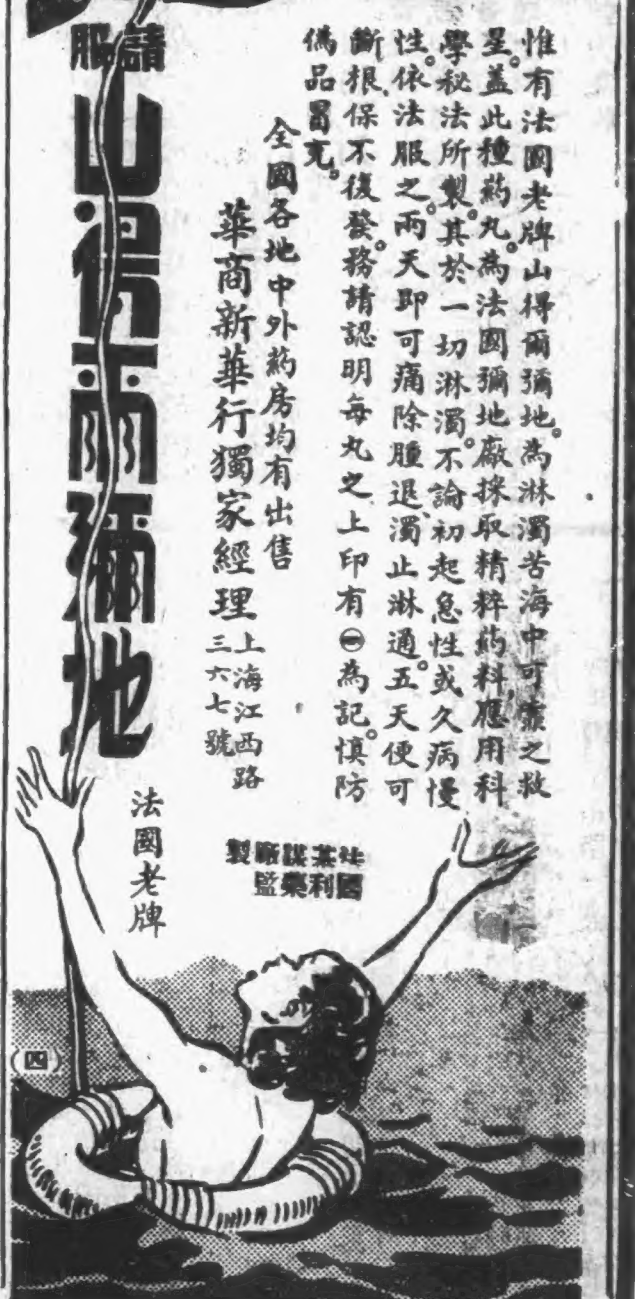 惟有法國老牌山得爾彌地。為淋濁苦海中可靠之救
星。蓋此種葯丸。為法國彌地廠採取精粹葯料應用科
學秘法所製。其於一切淋濁。不論初起急性或久病慢
性。依法服之。兩天即可痛除腫退、濁止淋通。五天便可
斷根、保不復發。務請認明每丸之上印有㊀為記。慎防
偽品冒充。
全國各地中外葯房均有出售
華商新華行獨家經理
上海江西路
三六七號
請服
山得爾彌地
法國老牌
(四)